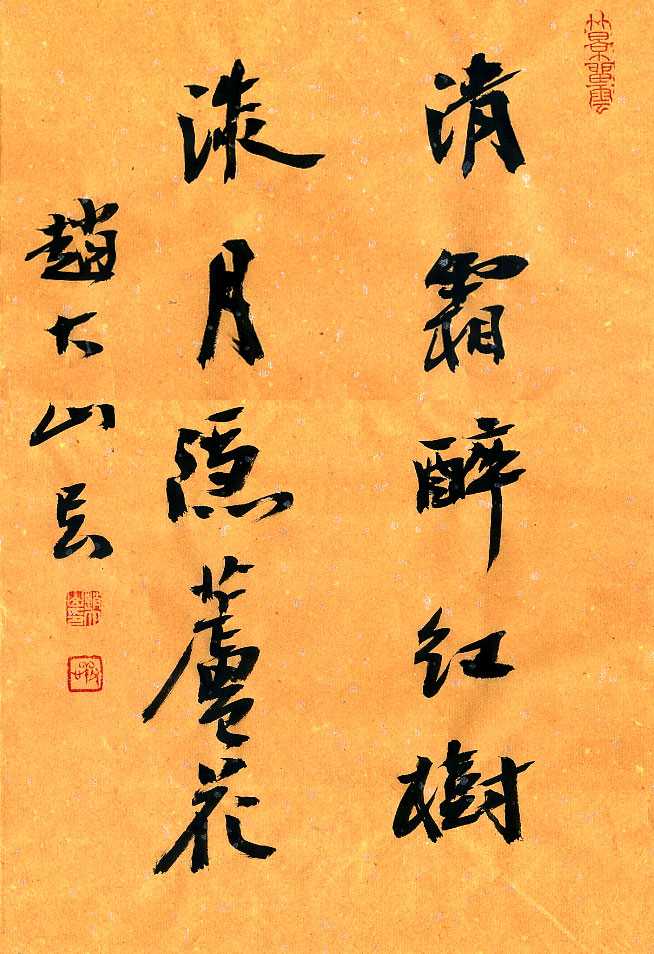 清霜醉红樹
淡月隱蘆花
趙大山書